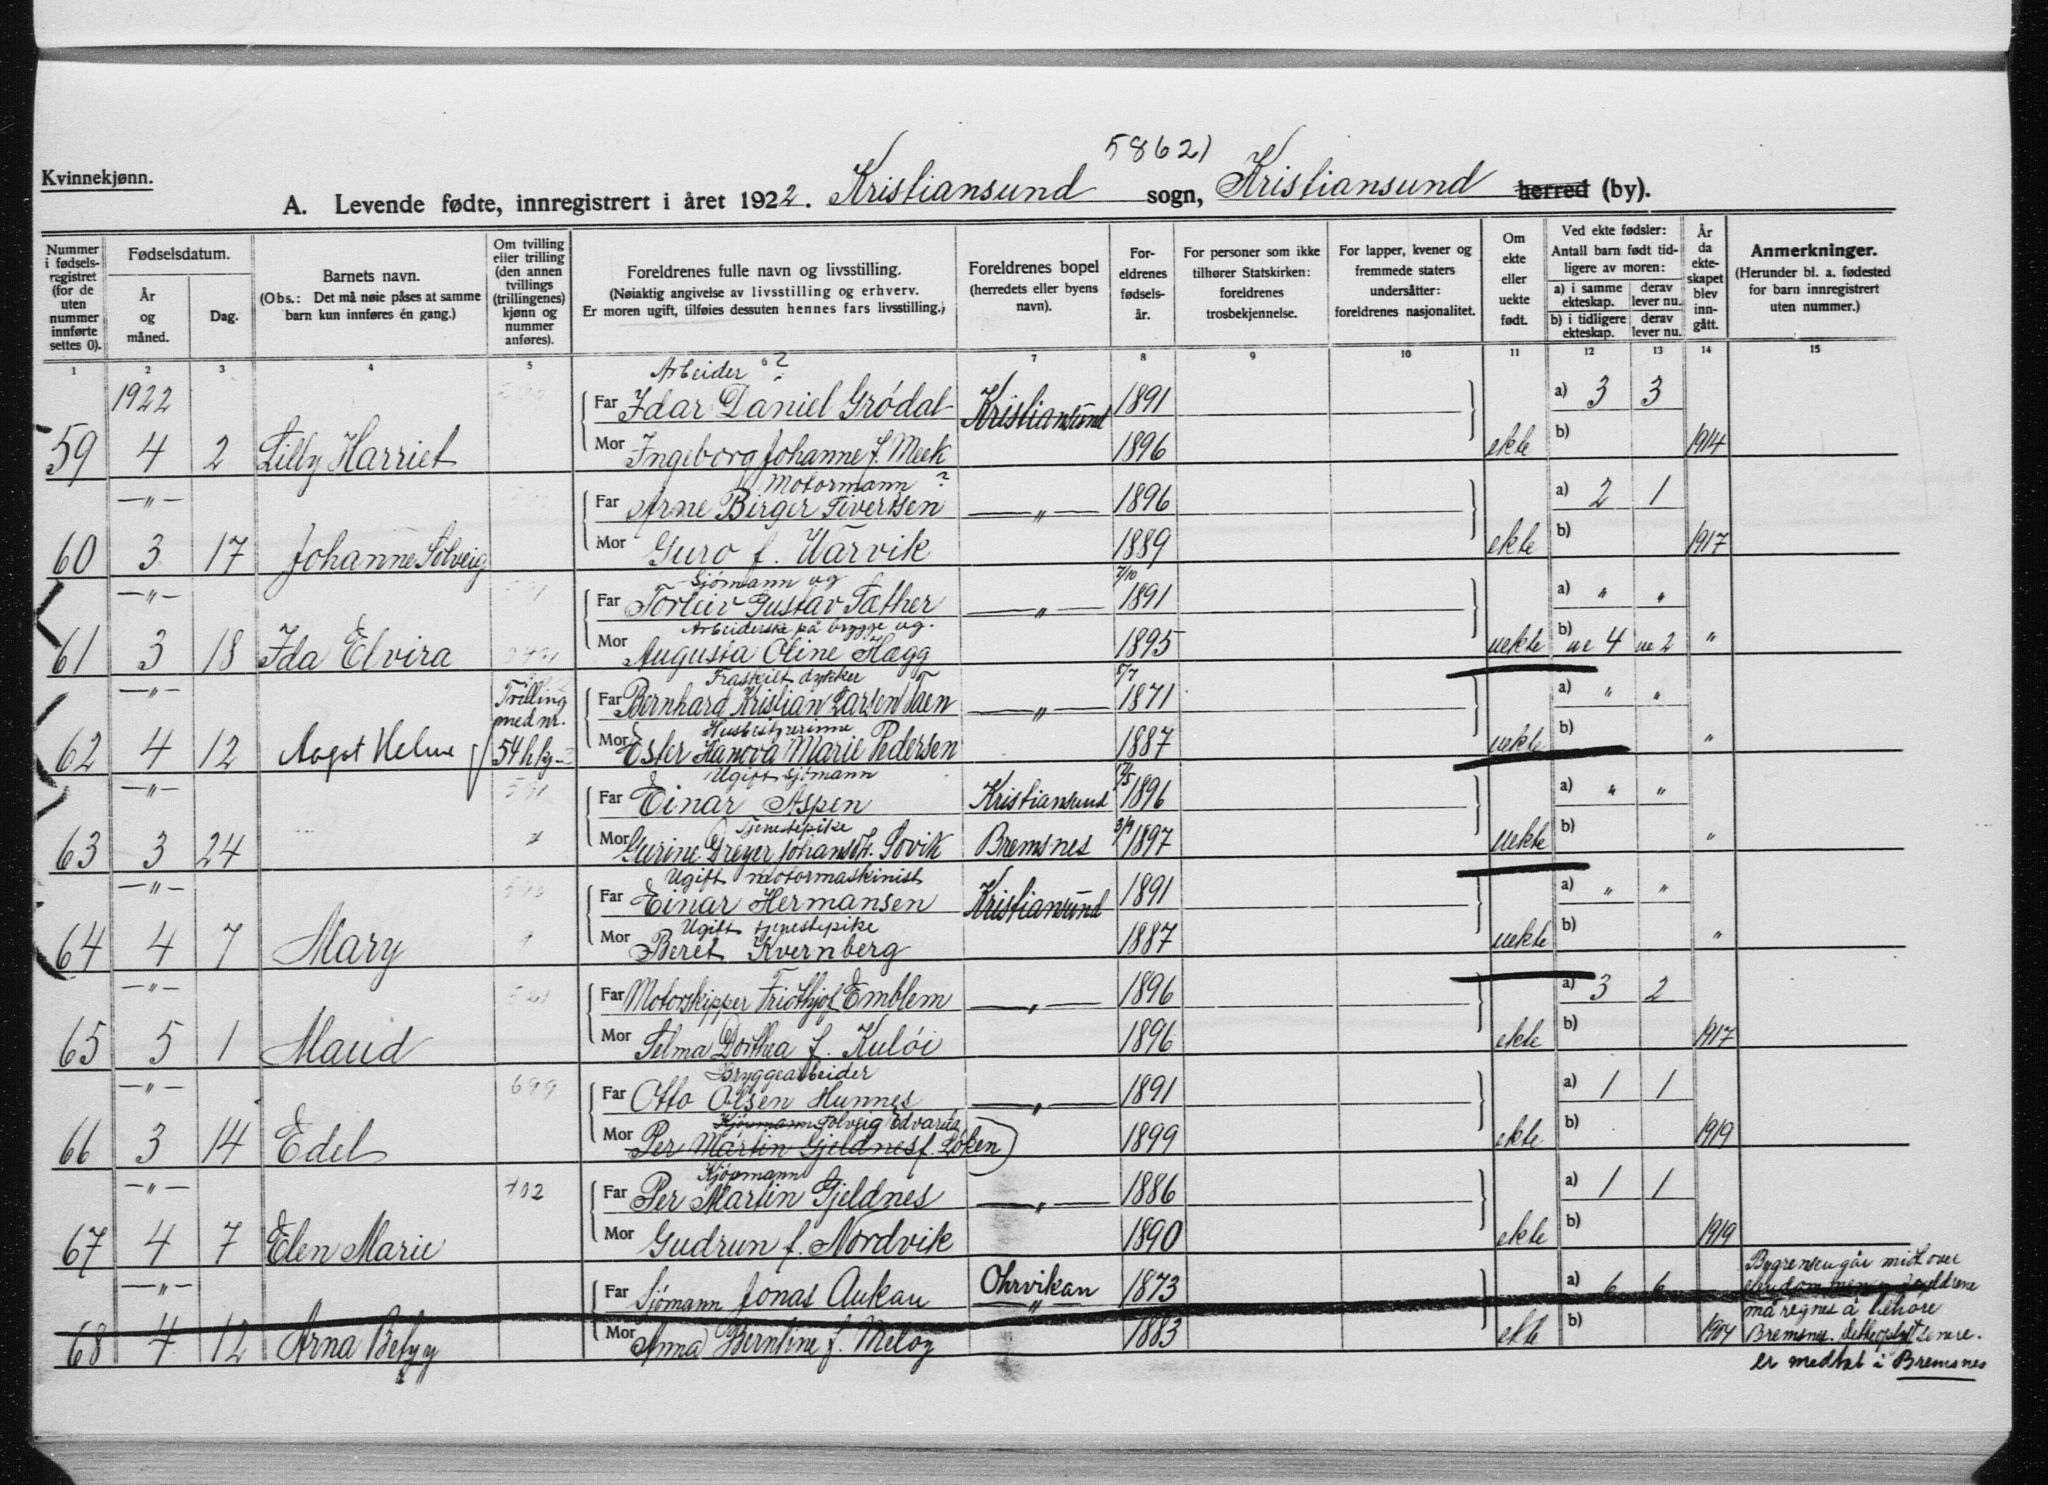 58621)
Kvinnekjønn.
A. Levende fødte, innregistrert i året 1922. Kristiansund sogn, Kristiansund herred (by).
Nummer i fødsels-registret (for de uten nummer innførte settes 0).
Fødselsdatum.
År og måned.
Dag.
Barnets navn.
(Obs.: Det må nøie påses at samme barn kun innføres én gang.)
Om tvilling eller trilling (den annen tvillings (trillingenes) kjønn og nummer anføres).
Foreldrenes fulle navn og livsstilling.
(Nøiaktig angivelse av livsstilling og erhverv.
Er moren ugift, tilføies dessuten hennes fars livsstilling.)
Foreldrenes bopel (herredets eller byens navn).
For-eldrenes fødsels-år.
For personer som ikke tilhører Statskirken: foreldrenes trosbekjennelse.
For lapper, kvener og fremmede staters undersåtter: foreldrenes nasjonalitet.
Om ekte eller uekte født.
Ved ekte fødsler: Antall barn født tid-ligere av moren:
a) i samme ekteskap. derav lever nu.
b) i tidligere ekteskap. derav lever nu.
År da ekte-skapet blev inn-gått.
Anmerkninger.
(Herunder bl. a. fødested for barn innregistrert uten nummer.)
1 2 3 4 5 6 7 8 9 10 11 12 13 14 15
1922 Arbeider ?
Far Idar Daniel Grödal Kristiansund 1891 a) 3 3
59 4 2 Lilly Harriet Mor Ingeborg Johanne f. Meek 1896 ekte b) 1914
Motormann ?
—"— Far Arne Birger Sivertsen —"— 1896 a) 2 1
60 3 17 Johanne Solveig Mor Guro f. Varvik 1889 ekte b) 1917
Sjömann og 7/10
—"— Far Torleiv Gustav Sæther —"— 1891 a) " "
Arbeiderske på brygge og.
61 3 18 Ida Elvira Mor Augusta Oline Hægg 1895 uekte b) ue 4 ue 2 "
Fraskilt dykker 5/7
—"— Tvilling med nr. Far Bernhard Kristian Larsen Taen —"— 1871 a) " "
Husbestyrerinne
62 4 12 Aagot Helene 54 h kj Mor Ester Hanova Marie Pedersen 1887 uekte b) "
Ugift sjömann 17/5
—"— Far Einar Aspen Kristiansund 1896 a) " "
Tjenestepike
63 3 24 Mor Gurine Dreyer Johansdt. Sovik Bremsnes 3/9 1897 uekte b) "
Ugift motormaskinist
—"— Far Einar Hermansen Kristiansund 1891 a) " "
Ugift tjenestepike
64 4 7 Mary Mor Beret Kvernberg 1887 uekte b) "
—"— Far Motorskipper Friothjof Emblem —"— 1896 a) 3 2
65 5 1 Maud Mor Selma Dorthea f. Kulöi 1896 ekte b) 1917
Bryggearbeider
—"— 699 Far Otto Olsen Hunnes —"— 1891 a) 1 1
Kjöpmann Solveig Edvarda
66 3 14 Edel Mor Per Martin Gjeldnes f. Löken 1899 ekte b) 1919
Kjöpmann
—"— 702 Far Per Martin Gjeldnes —"— 1886 a) 1 1
67 4 7 Elen Marie Mor Gudrun f. Nordvik 1890 ekte b) 1919
—"— Far Sjömann Jonas Aukan Ohrvikan 1873 a) 6 6
68 4 12 Arna Betzy Mor Anna Berntine f. Meloy —"— 1883 ekte b) 1904
Bygrensen går midt over
eiendommen foreldrene
må regnes å tilhöre
Bremsnes. Dette oplyst senere.
er medtat i Bremsnes